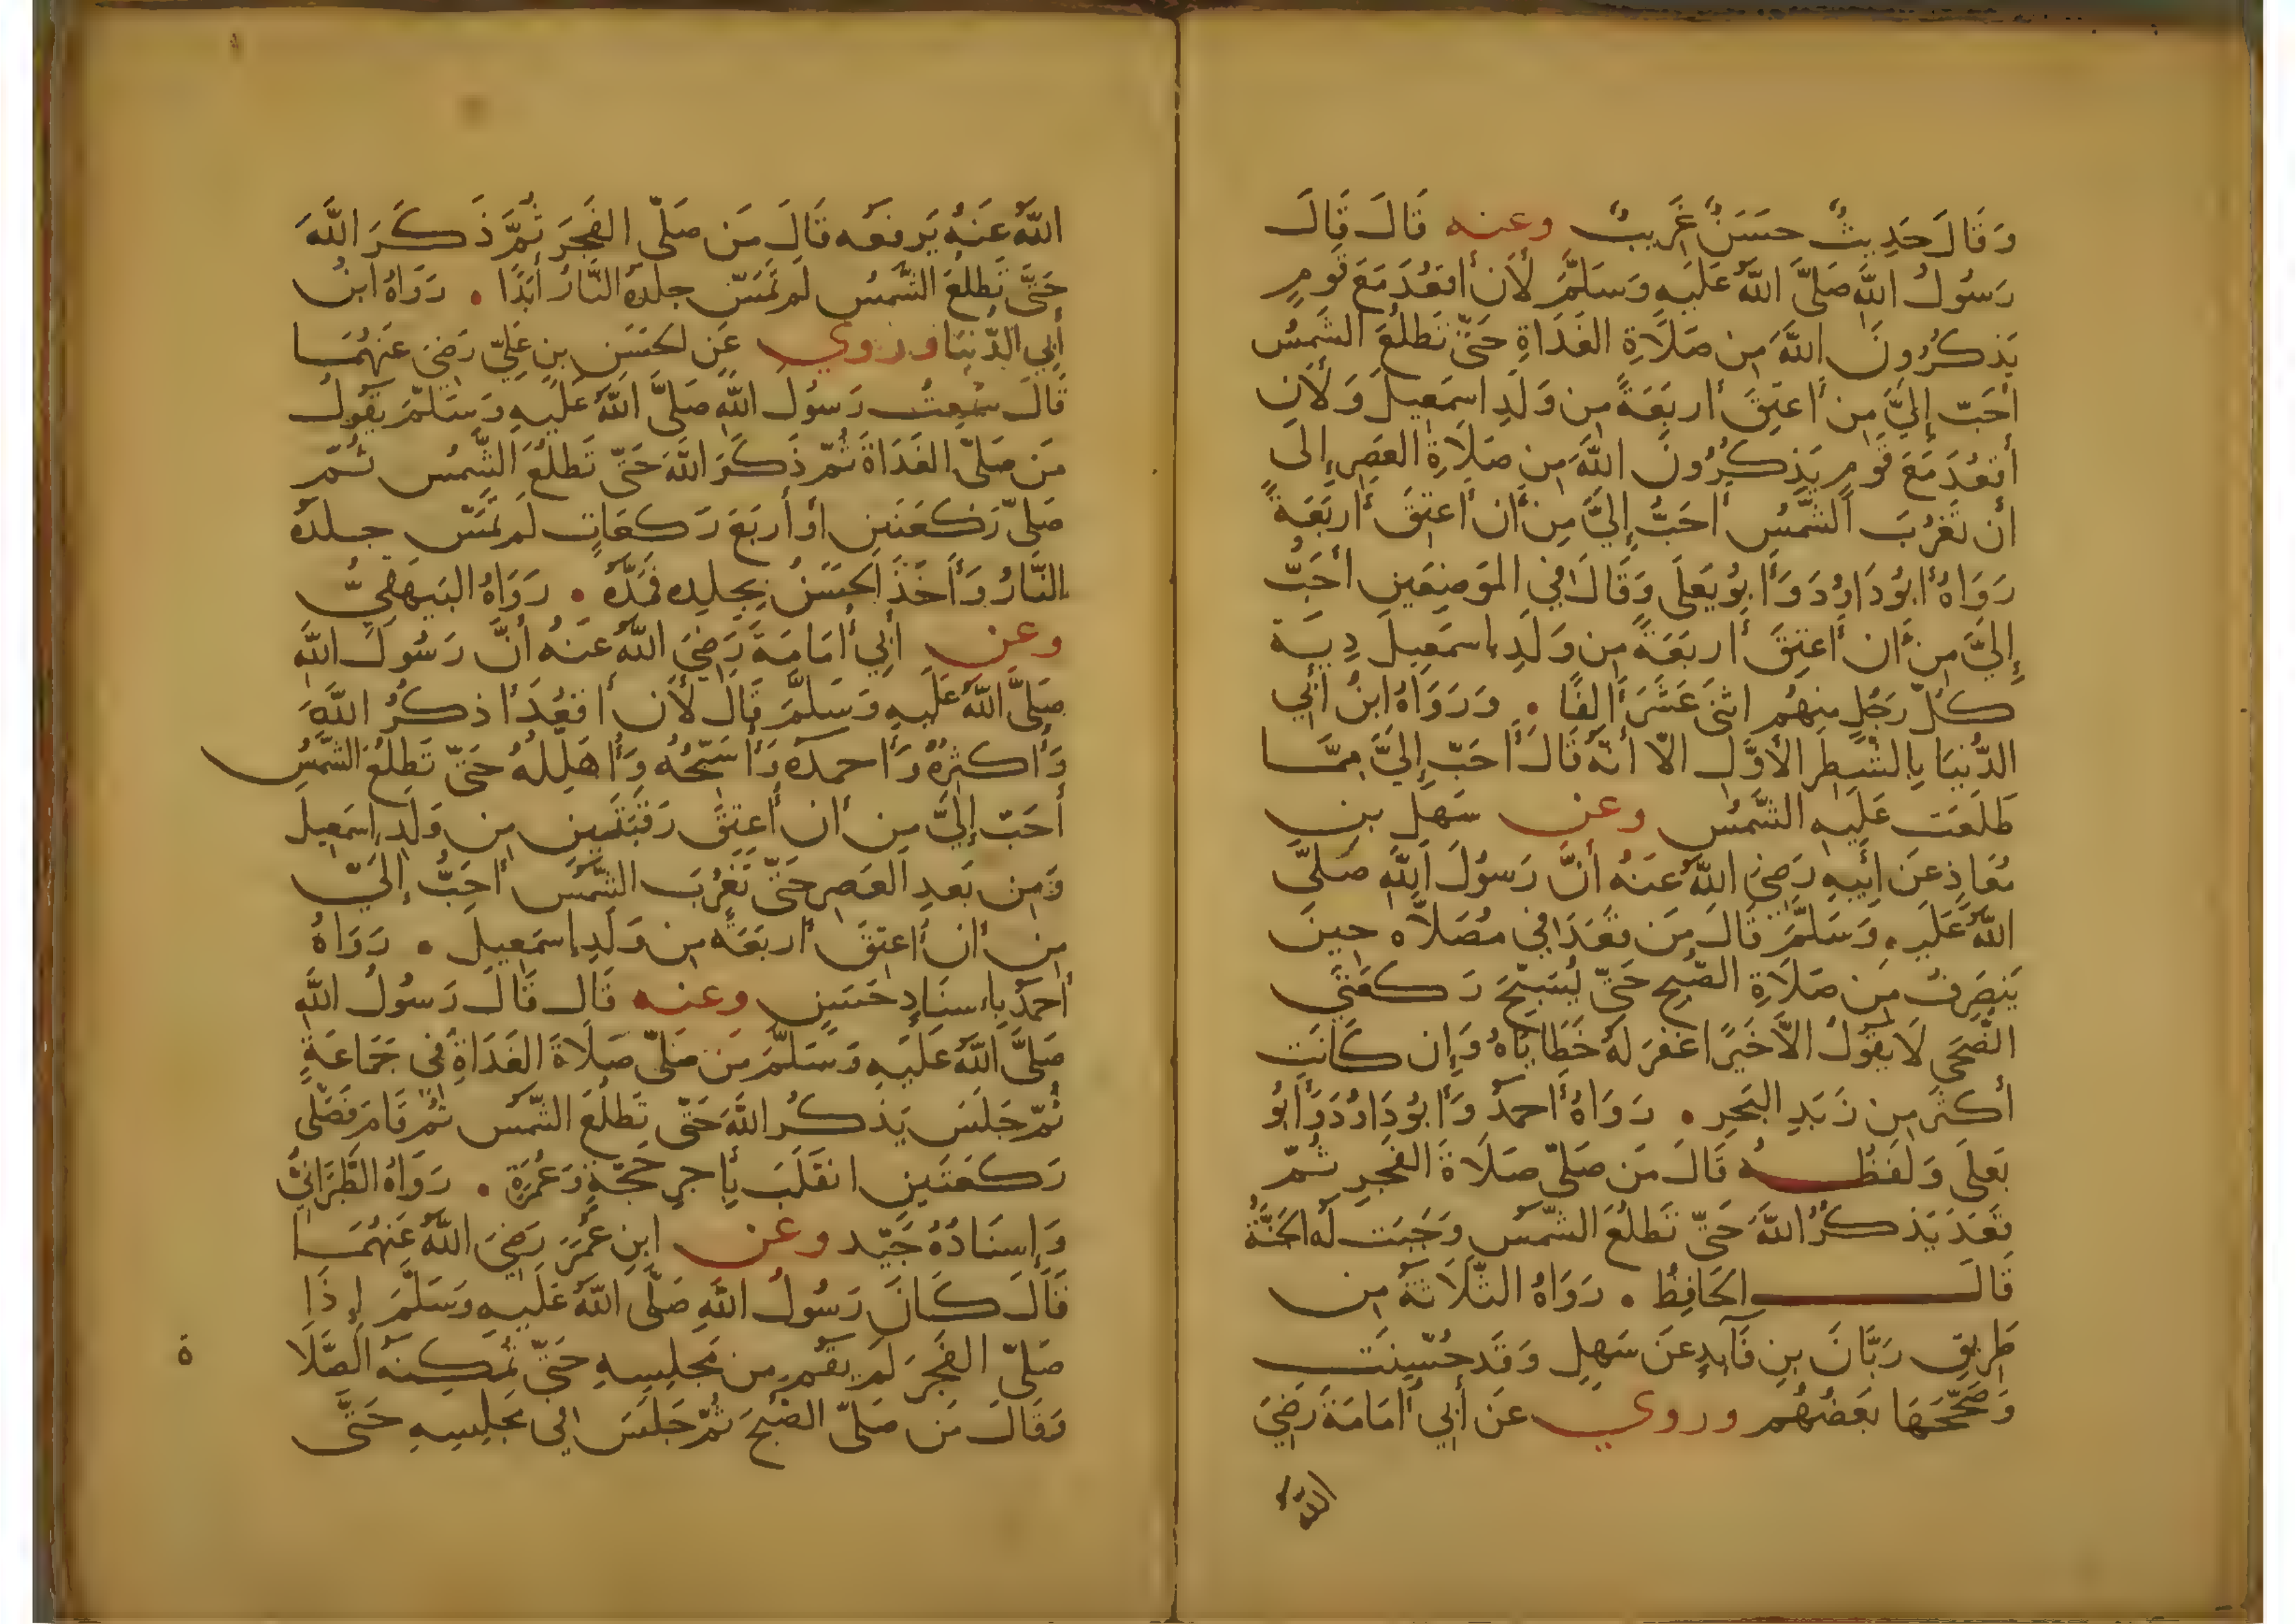 وَقَالَ حَدِيثٌ حسَنٌ غَرِيبٌ وعنه قَالَ قَالَ
رَسُولُ اللَّهِ صَلَّى اللَّهُ عَلَيهِ وَسَلَّمَ لَأَن أَقعُدَ مَعَ قَومٍ
يَذكُرُونَ اللَّهَ مِن صَلَاةِ الغَدَاةِ حَتَّى تَطلُعَ الشَّمسُ
أَحَبّ إِلَيَّ مِن أَعتِقَ أَربَعَةً مِن وَلَدِ اسمَعِيلَ وَلَأَن
أَقعُدَ مَعَ قَومٍ يَذكُرُونَ اللَّهَ مِن صَلَاةِ العَصرِ إِلَى
أَن تَغرُبَ الشَّمسُ أَحَبُّ إِلَيَّ مِن أَن أَعتِقَ أَربَعَةً
رَوَاهُ أَبُو دَاوُدَ وَأَبُو يَعلَى وَقَالَ فِي المَوضِعَينِ أَحَبُّ
إِلَيَّ مِن أَن أَعتِقَ أَربَعَةً مِن وَلَدِ إِسمَعِيلَ دِيَة
كلّ رَجُلٍ مِنهُم اثنَى عَشَرَ أَلفًا . وَرَوَاهُ ابنُ أَبِي
الدُّنيَا بِالشّطرِ الأَوَّلِ الّا أَنّهُ قَالَ أَحَبّ إِلَيَّ مِمَّا
طَلَعَت عَلَيهِ الشَّمسُ وعن سَهلِ بنِ
مُعَاذٍ عَن أَبِيهِ رَضِيَ اللَّهُ عَنهُ أَنَّ رَسُولَ اللَّهِ صَلَّى
اللَّهُ عَلَيهِ وَسَلَّمَ قَالَ مَن قَعَدَ فِي مُصَلَّاه حِينَ
يَنصَرِفُ مِن صَلَاةِ الصّبحِ حَتَّى يُسَبِّحَ رَكعَتَي
الضُّحَى لَا يقُولُ الّا خَيرًا غفرَ لَهُ خَطَايَاهُ وَإِن كَانَت
أَكثَرَ مِن زَبَدِ البَحرِ . رَوَاهُ أَحمَدُ وَأَبُو دَاوُدَ وَأَبُو
يَعلَى وَلَفظُه قَالَ مَن صَلّى صَلَاةَ الفَجرِ ثُمّ
قَعَدَ يَذكُرُ اللَّهَ حَتَّى تَطلُعَ الشّمس وَجَبَت لَه الجَنَّةُ
قَالَ الحَافِظُ . رَوَاهُ الثَّلَاثَةُ مِن
طَرِيقِ زَبَّانَ بنِ فَآيِدٍ عَن سَهلٍ وَقَد حُسِّنَت
وَصَحَّحَهَا بَعضُهُم وروي عَن أَبِي أُمَامَةَ رَضِيَ
اللَّهُ
اللَّهُ عَنهُ يَرفَعُه قَالَ مَن صَلّى الفَجرَ ثُمَّ ذَكَرَ اللَّهَ
حَتَّى تَطلُعَ الشَّمسُ لَم تَمَسّ جِلدَهُ النَّارُ أَبَدًا . رَوَاهُ ابنُ
أَبِي الدُّنيَا وروي عَنِ الحَسَنِ بنِ عَلِيّ رَضِيَ عَنهُمَا
قَالَ سَمِعتُ رَسُولَ اللَّهِ صَلَّى اللَّهُ عَلَيهِ وَسَلَّمَ يَقُولُ
مَن صَلّى الغَدَاةَ ثُمّ ذَكَرَ اللَّهَ حَتَّى تَطلُعَ الشَّمسُ ثُمّ
صَلّى رَكعَتَينِ أَو أَربَعَ رَكعَاتٍ لَم تَمَسّ جِلدَهُ
النَّارُ وَأَخَذَ الحَسَنُ بِجِلدِهِ فَمَدَّهُ . رَوَاهُ البَيهَقِيُّ
وعن أَبِي أُمَامَةَ رَضِيَ اللَّهُ عَنهُ أَنَّ رَسُولَ اللَّهِ
صَلَّى اللَّهُ عَلَيهِ وَسَلَّمَ قَالَ لَأَن أَقعُدَ أَذكُرُ اللَّهَ
وَأكثِرُهُ وَأَحمَدُهُ وَأسَبِّحُهُ وَأُهَلِلُهُ حَتَّى تَطلُعَ الشَّمسُ
أَحَبّ إِلَيَّ مِن أَن أَعتِقَ رَقَبَتَينِ مِن وَلَدِ إِسمَعِيلَ
وَمِن بَعدِ العَصرِ حَتَّى تَغرُبَ الشَّمسُ أَحَبُّ إِلَيَّ
مِن أَن أَعتِقَ أَربَعَةً مِن وَلَدِ إِسمَعِيلَ . رَوَاهُ
أَحمَدُ بِاسنَادٍ حَسَنٍ وعنه قَالَ قَالَ رَسُولُ اللَّهِ
صَلَّى اللَّهُ عَلَيهِ وَسَلَّمَ مَن صَلّى صَلَاةَ الغَدَاةِ فِي جَمَاعَةٍ
ثُمّ جَلَسَ يَذكُرُ اللَّهَ حَتَّى تَطلُعَ الشَّمسُ ثُمّ قَامَ فَصَلّى
رَكعَتَينِ انقَلَبَ بِأَجرِ حَجّةٍ وَعُمرَةٍ . رَوَاهُ الطَّبَرَانِيُّ
وَإِسنَادُهُ جَيّد وعن ابنِ عُمَرَ رَضِيَ اللَّهُ عَنهُمَا
قَالَ كَانَ رَسُولُ اللَّهِ صَلَّى اللَّهُ عَلَيهِ وَسَلَّمَ إِذَا
صَلّى الفَجرَ لَم يَقُم مِن مَجلِسِهِ حَتَّى تُمكِنَهُ الصَّلَا
ة
وَقَالَ مَن صَلّى الصُّبحَ ثُمّ جَلَسَ فِي مَجلِسِهِ حَتَّى